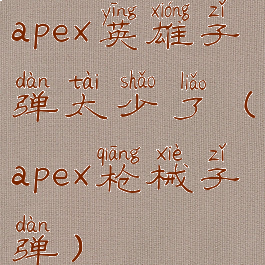 yīng xióng zǐ
apex英雄子
dàn tài shǎo liǎo
弹太少了（
qiāng xiè zǐ
apex枪械子
dàn
弹）